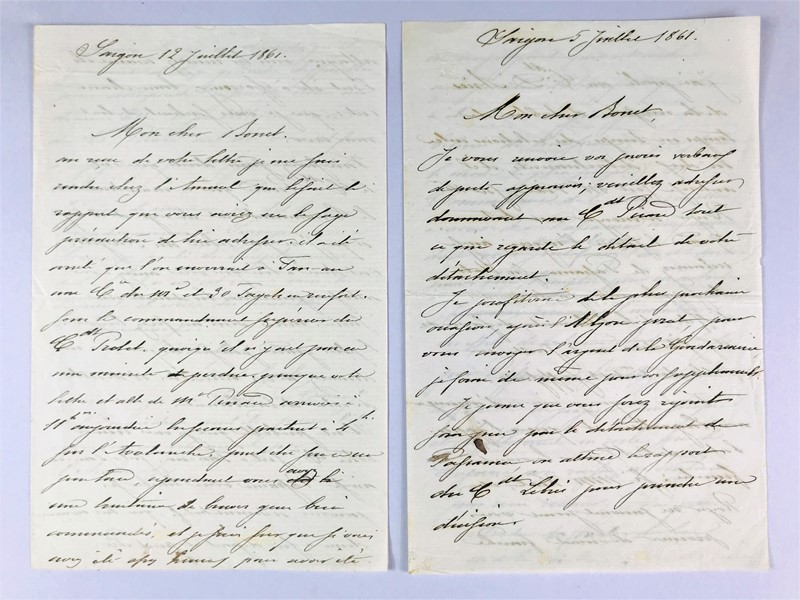 Saigon 12 Juillet 1861.
Mon cher Bonet.
au reçu de votre lettre je me suis
rendu chez l'Amiral qui lisait le
rapport que vous aviez eu le sage
précaution de lui adresser, il a été
arrêté que l'on enverrait à
une Cie du et 30 Tagals en renfort.
sous le commandement supérieur du
Cdt quoiqu'il n'y ait pas eu
une minute de perdue, puisque votre
lettre et celle de Mr arrivée à
11h aujourd'hui les secours partent à 4h.
sur l'Avalanche, peut être sera ce un
peu tard, cependant vous avez là
une centaine de braves gens bien
commandés, et je suis sur que si vous
avez été assez heureux pour avoir été
Saigon 5 Juillet 1861.
Mon cher Bonet,
Je vous renvoie vos procès verbaux
de perte approuvés; veuillez adresser
au Cdt tout
ce qui regarde le détail de votre
détachement.
Je profiterai de la plus prochaine
occasion, après l'Alson peut pour
vous envoyer l'argent de la Gendarmerie
je ferai de même pour vos suppléments.
Je pense que vous serez rejoints
sous peu par le détachement de
on attend le rapport
du Cdt pour prendre une
décision